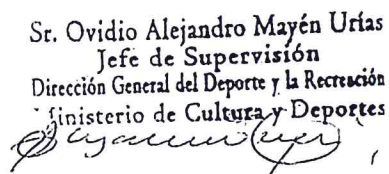 Sr. Ovidio Alejandro Mayén Urías
Jefe de Supervisión
Dirección General del Deporte y la Recreación
Ministerio de Cultura y Deportes